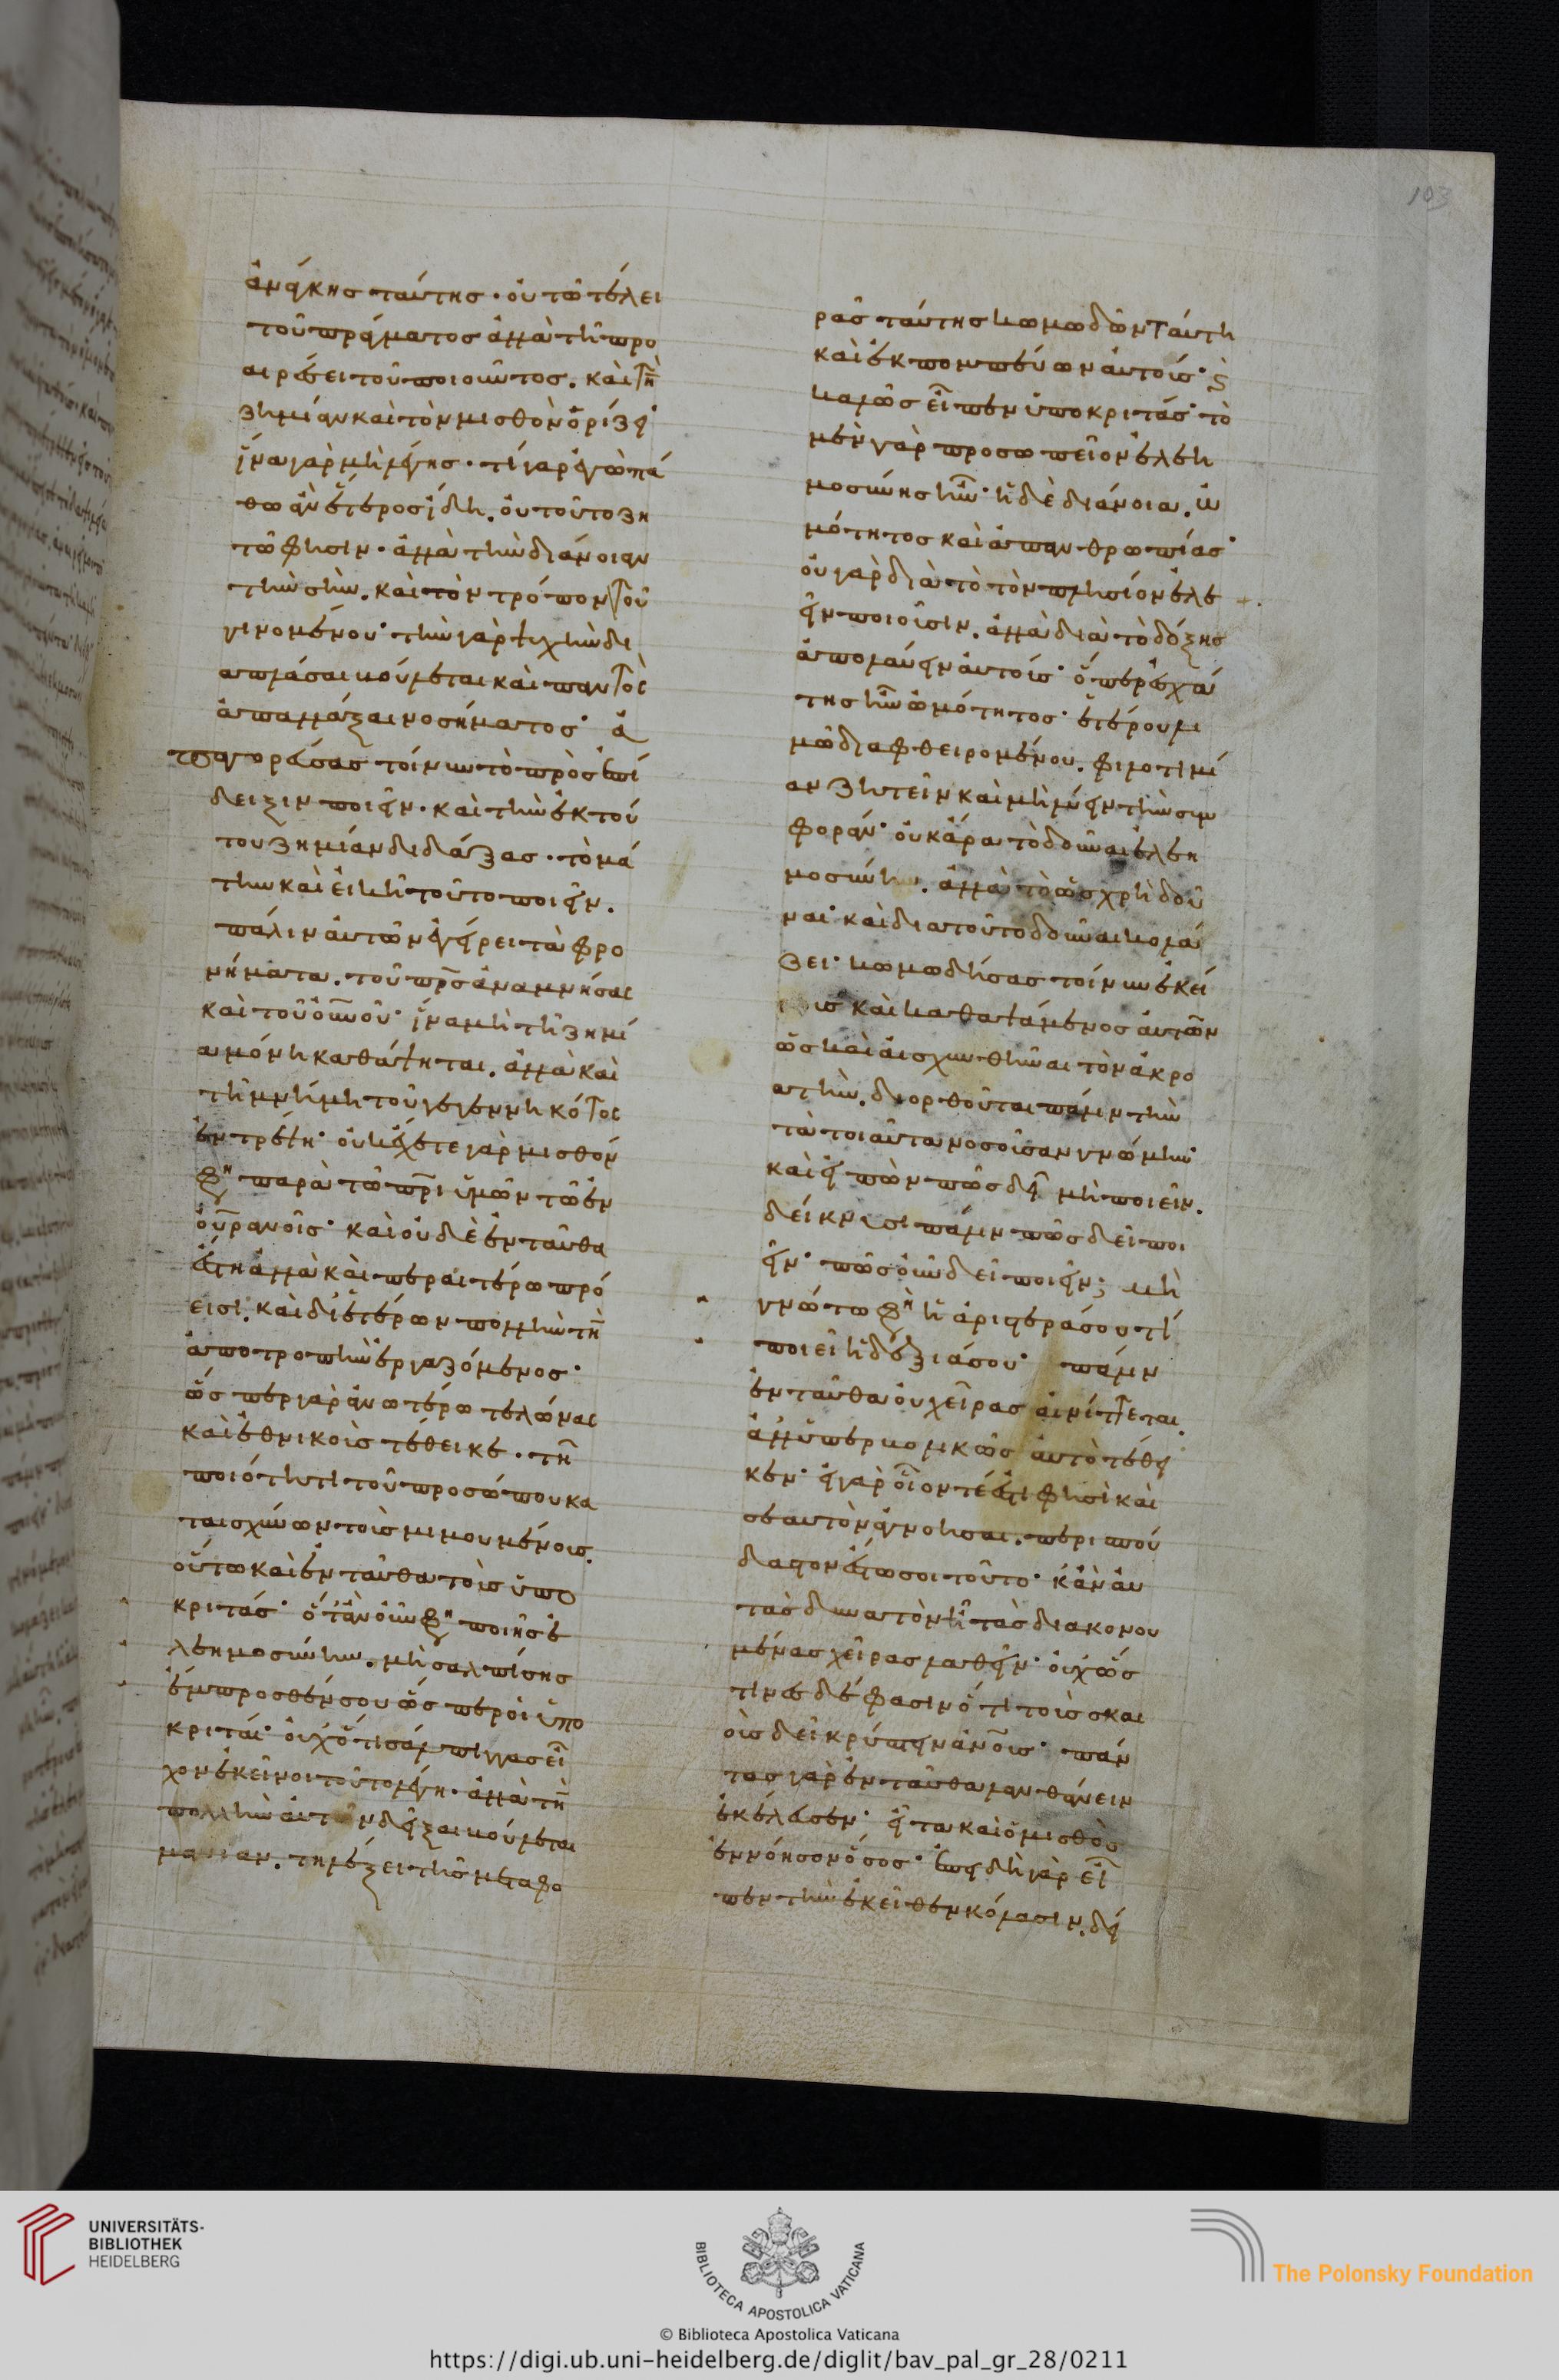 ἀνάγκης ταύτης· οὐ τῶ τέλει
τοῦ πράγματος ἀλλὰ τῆ προ
αιρέσει τοῦ ποιοῦντος. καὶ τὴν
ζημίαν καὶ τὸν μισθὸν ὁρίζει·
ἵνα γὰρ μὴ λέγης· τί γὰρ ἐγὼ πά
θω ἂν ἕτερος ἴδη. οὐ τοῦτο ζη
τῶ φησιν· ἀλλὰ τὴν διάνοιαν
τὴν σὴν. καὶ τὸν τρόπον τοῦ
γινομένου· τὴν γὰρ ψυχὴν δι
απλάσαι βούλεται καὶ παντὸς
ἀπαλλάξαι νοσήματος· ἀ
παγορεύσας τοίνυν τὸ πρὸς ἐπί
δειξιν ποιεῖν· καὶ τὴν ἐκ τού
του ζημίαν διδάξας· τὸ μά
την καὶ εἰκῆ τοῦτο ποιεῖν.
πάλιν αὐτῶν ἐγείρει τὰ φρο
νήματα. τοῦ πρς ἀναμνήσας
καὶ τοῦ οὐνοῦ· ἵνα μὴ τῆ ζημί
α μόνη καθάψηται. ἀλλὰ καὶ
τῆ μνήμη τοῦ γεγεννηκότος
ἐντρέψη· οὐκ ἔχετε γὰρ μισθόν
φη παρὰ τῶ πρι ὑμῶν τῶ ἐν
οὐρανοῖς· καὶ οὐδὲ ἐνταῦθα
ἔστη ἀλλὰ καὶ περαιτέρω πρό
εισι. καὶ δι' ἑτέρων πολλὴν τὴν
ἀποτροπὴν ἐργαζόμενος·
ὥσπερ γὰρ ἀνωτέρω τελώνας
καὶ ἐθνικοὺς τέθεικε· τῆ
ποιότητι τοῦ προσώπου κα
ταισχύνων τοὺς μιμουμένους.
οὕτω καὶ ἐνταῦθα τοὺς ὑπο
κριτάς· ὅταν οὖν φη ποιῆς ἐ
λεημοσύνην. μὴ σαλπίσης
ἔμπροσθέν σου ὥσπερ οἱ ὑπο
κριταί· οὐχ ὅτι σάλπιγγας εἶ
χον ἐκεῖνοι τοῦτο λέγει· ἀλλὰ τὴν
πολλὴν αὐτῶν δεῖξαι βούλεται
μανίαν. τῆ λέξει τῆς μεταφο
ρᾶς ταύτης κωμωδῶν ταύτη
καὶ ἐκπομπεύων αὐτούς· καὶ
καλῶς εἶπεν ὑποκριτάς· τὸ
μὲν γὰρ προσωπεῖον ἐλεη
μοσύνης ἦν· ἡ δὲ διάνοια. ὠ
μότητος καὶ ἀπανθρωπίας·
οὐ γὰρ διὰ τὸ τὸν πλησίον ἐλε
εῖν ποιοῦσιν. ἀλλὰ διὰ τὸ δόξης
ἀπολαύειν αὐτούς· ὅπερ ἐσχά
της ἦν ὠμότητος· ἑτέρου λι
μῶ διαφθειρομένου. φιλοτιμί
αν ζητεῖν καὶ μὴ λύειν τὴν συμ
φοράν· οὐκ ἄρα τὸ δοῦναι ἐλεη
μοσύνην. ἀλλὰ τὸ ὡς χρὴ δοῦ
ναι· καὶ διατοῦτο δοῦναι κολά
ζει· κωμωδήσας τοίνυν ἐκεί
νους καὶ καθαψάμενος αὐτῶν
ὡς καὶ αἰσχυνθῆναι τὸν ἀκρο
ατὴν. διορθοῦται πάλιν τὴν
τὰ τοιαῦτα νοσοῦσαν γνώμην·
καὶ εἰπὼν πῶς δεῖ μὴ ποιεῖν.
δείκνυσι πάλιν πῶς δεῖ ποι
εῖν· πῶς οὖν δεῖ ποιεῖν; μὴ
γνώτω φη ἡ ἀριστερά σου τί
ποιεῖ ἡ δεξιά σου· πάλιν
ἐνταῦθα οὐ χεῖρας αἰνίττεται.
ἀλλ' ὑπερβολικῶς αὐτὸ τέθει
κεν· εἰ γὰρ οἷόν τέ ἐστι φησὶ καὶ
σεαυτὸν ἀγνοῆσαι. περισπού
δαστον ἔστω σοι τοῦτο· κἂν αὐ
τὰς δυνατὸν ἦ τὰς διακονου
μένας χεῖρας λαθεῖν· οὐχ ὥς
τινές φασιν ὅτι τοὺς σκαι
οὺς δεῖ κρύπτειν ἀνους· πάν
τας γὰρ ἐνταῦθα λανθάνειν
ἐκέλευσεν· εἶτα καὶ ὁ μισθὸς
ἐννόησον ὅσος· ἐπειδὴ γὰρ εἶ
πεν τὴν ἐκεῖθεν κόλασιν. δεί
103
UNIVERSITÄTS-
BIBLIOTHEK
HEIDELBERG
BIBLIOTECA APOSTOLICA VATICANA
The Polonsky Foundation
© Biblioteca Apostolica Vaticana
https://digi.ub.uni-heidelberg.de/diglit/bav_pal_gr_28/0211